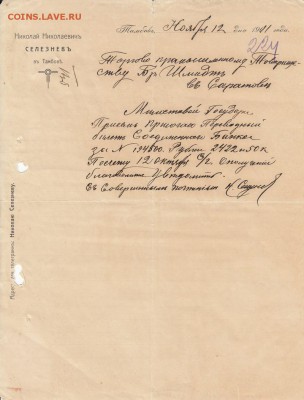 COINS.LAVE.RU
Николай Николаевичъ
СЕЛЕЗНЕВЪ
въ Тамбовѣ.
Тамбовъ, Ноября 12 дня 1911 года.
Торгово промышленному Товарище-
ству Бр Шмидтъ
Въ Саратовъ
Милостивый Государь
При семъ Переводный
билетъ Соединеннаго Банка
за № Рубли 2422 и 50 к
По счету 12 октября с/г О получении
благоволите увѣдомить
Съ совершеннымъ почтеніемъ Н Селезневъ
Адресъ для телеграммъ: Николаю Селезневу.